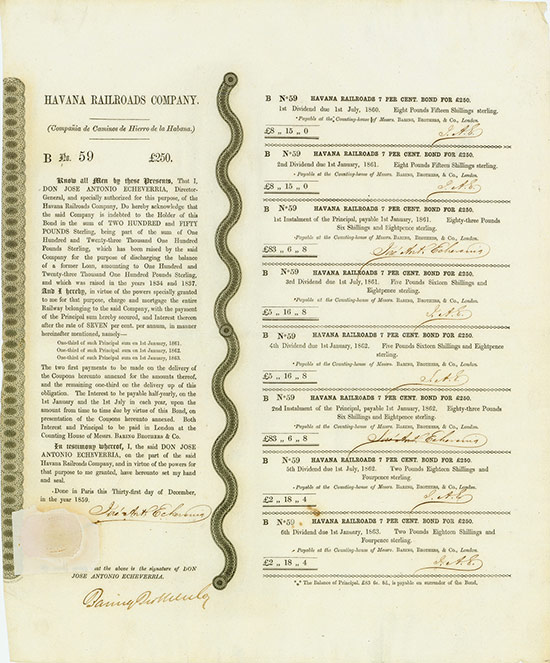 HAVANA RAILROADS COMPANY.
(Compañia de Caminos de Hierro de la Habana.)
B No. 59 £250.
Know all Men by these Presents, That I,
DON JOSE ANTONIO ECHEVERRIA, Director-
General, and specially authorized for this purpose, of the
Havana Railroads Company, Do hereby acknowledge that
the said Company is indebted to the Holder of this
Bond in the sum of TWO HUNDRED and FIFTY
POUNDS Sterling, being part of the sum of One
Hundred and Twenty-three Thousand One Hundred
Pounds Sterling, which has been raised by the said
Company for the purpose of discharging the balance
of a former Loan, amounting to One Hundred and
Twenty-three Thousand One Hundred Pounds Sterling,
and which was raised in the years 1834 and 1837.
And I hereby, in virtue of the powers specially granted
to me for that purpose, charge and mortgage the entire
Railway belonging to the said Company, with the payment
of the Principal sum hereby secured, and Interest thereon
after the rate of SEVEN per cent. per annum, in manner
hereinafter mentioned, namely:—
One-third of such Principal sum on 1st January, 1861.
One-third of such Principal sum on 1st January, 1862.
One-third of such Principal sum on 1st January, 1863.
The two first payments to be made on the delivery of
the Coupons hereunto annexed for the amounts thereof,
and the remaining one-third on the delivery up of this
obligation. The Interest to be payable half-yearly, on the
1st January and the 1st July in each year, upon the
amount from time to time due by virtue of this Bond, on
presentation of the Coupons hereunto annexed. Both
Interest and Principal to be paid in London at the
Counting House of Messrs. BARING BROTHERS & Co.
In testimony whereof, I, the said DON JOSE
ANTONIO ECHEVERRIA, on the part of the said
Havana Railroads Company, and in virtue of the powers for
that purpose to me granted, have hereunto set my hand
and seal.
Done in Paris this Thirty-first day of December,
in the year 1859.
José Ant. Echeverria
at the above is the signature of DON
JOSE ANTONIO ECHEVERRIA.
Baring Brothers & Co
B No. 59 HAVANA RAILROADS 7 PER CENT. BOND FOR £250.
1st Dividend due 1st July, 1860. Eight Pounds Fifteen Shillings sterling.
Payable at the Counting-house of Messrs. BARING, BROTHERS, & Co., London.
£8 „ 15 „ 0 J. A. E.
B No. 59 HAVANA RAILROADS 7 PER CENT. BOND FOR £250.
2nd Dividend due 1st January, 1861. Eight Pounds Fifteen Shillings sterling.
Payable at the Counting-house of Messrs. BARING, BROTHERS, & Co., London.
£8 „ 15 „ 0 J. A. E.
B No. 59 HAVANA RAILROADS 7 PER CENT. BOND FOR £250.
1st Instalment of the Principal, payable 1st January, 1861. Eighty-three Pounds
Six Shillings and Eightpence sterling.
Payable at the Counting-house of Messrs. BARING, BROTHERS, & Co., London.
£83 „ 6 „ 8 José Ant. Echeverria
B No. 59 HAVANA RAILROADS 7 PER CENT. BOND FOR £250.
3rd Dividend due 1st July, 1861. Five Pounds Sixteen Shillings and
Eightpence sterling.
Payable at the Counting-house of Messrs. BARING, BROTHERS, & Co., London.
£5 „ 16 „ 8 J. A. E.
B No. 59 HAVANA RAILROADS 7 PER CENT. BOND FOR £250.
4th Dividend due 1st January, 1862. Five Pounds Sixteen Shillings and Eightpence
sterling.
Payable at the Counting-house of Messrs. BARING, BROTHERS, & Co., London.
£5 „ 16 „ 8 J. A. E.
B No. 59 HAVANA RAILROADS 7 PER CENT. BOND FOR £250.
2nd Instalment of the Principal, payable 1st January, 1862. Eighty-three Pounds
Six Shillings and Eightpence sterling.
Payable at the Counting-house of Messrs. BARING, BROTHERS, & Co., London.
£83 „ 6 „ 8 José Ant. Echeverria
B No. 59 HAVANA RAILROADS 7 PER CENT. BOND FOR £250.
5th Dividend due 1st July, 1862. Two Pounds Eighteen Shillings and
Fourpence sterling.
Payable at the Counting-house of Messrs. BARING, BROTHERS, & Co., London.
£2 „ 18 „ 4 J. A. E.
B No. 59 HAVANA RAILROADS 7 PER CENT. BOND FOR £250.
6th Dividend due 1st January, 1863. Two Pounds Eighteen Shillings and
Fourpence sterling.
Payable at the Counting-house of Messrs. BARING, BROTHERS, & Co., London.
£2 „ 18 „ 4 J. A. E.
*** The Balance of Principal, £83 6s. 8d., is payable on surrender of the Bond.